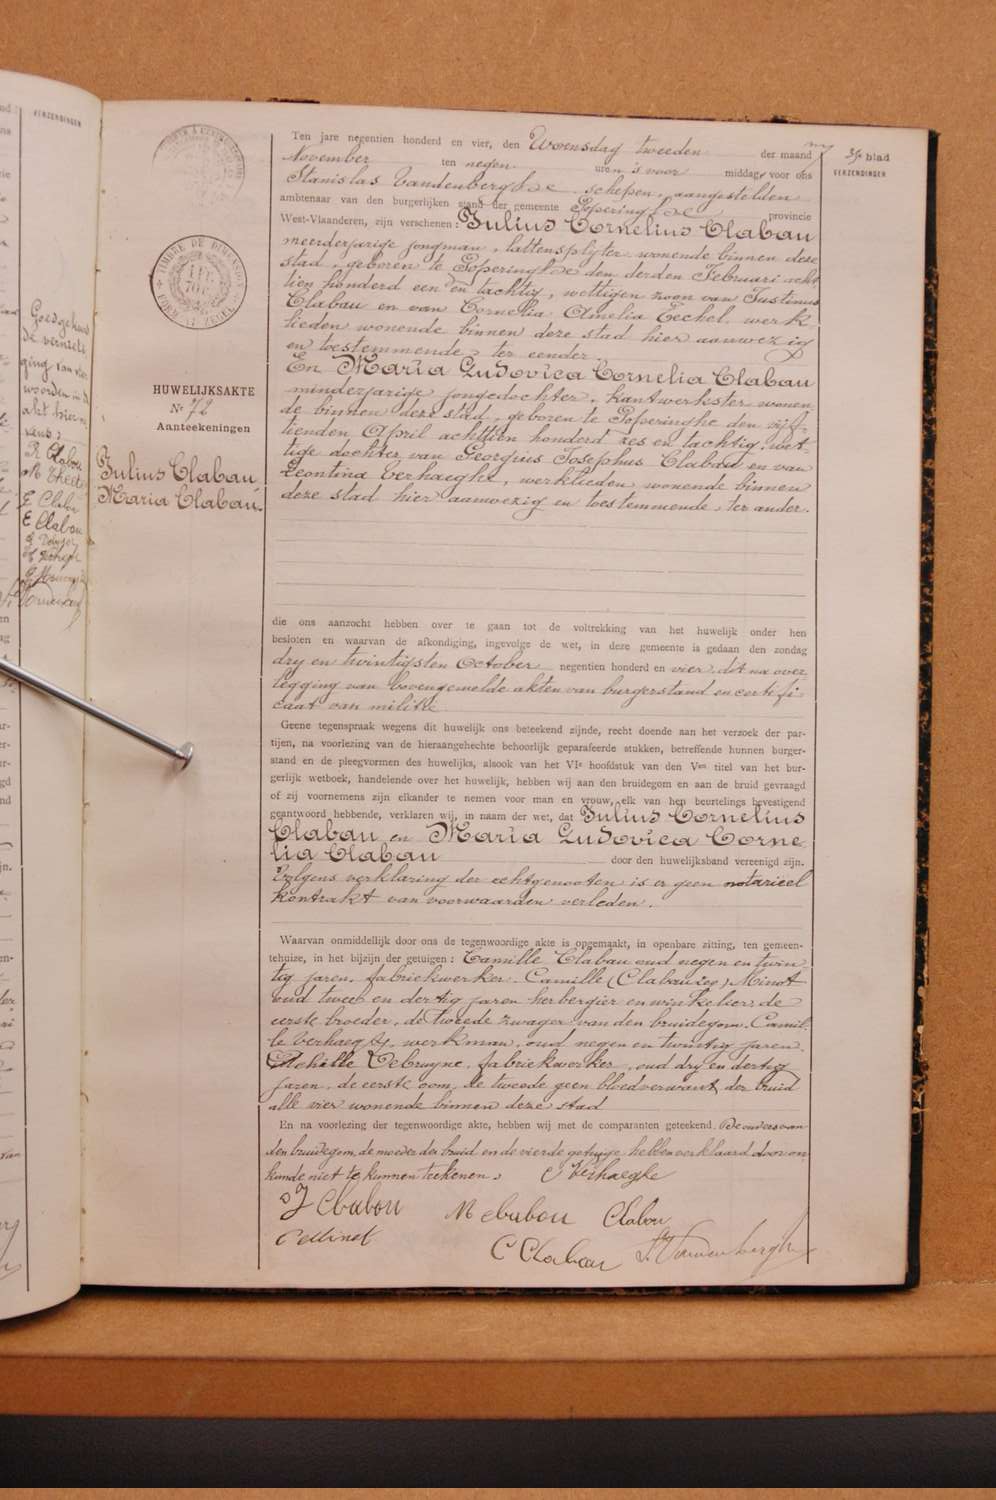 VERZENDINGEN
Goedgekeurd
de vernieti
ging van vier
woorden in d
akt hier
nevens
R Clabou
G Clabou
E Clabou
TIMBRE DE DIMENSION
FORMAAT ZEGEL
HUWELIJKSAKTE
Nr 72
Aanteekeningen
Julius Clabau
Maria Clabau.
39e blad
VERZENDINGEN
Ten jare negentien honderd en vier, den Woensdag tweeden der maand
November ten negen uren 's voor middag, voor ons
Stanislas Vandenberghe, schepen, aangestelden
ambtenaar van den burgerlijken stand der gemeente Poperinghe provincie
West-Vlaanderen, zijn verschenen: Julius Cornelius Clabau
meerderjarige jongman, lattensplyter wonende binnen deze
stad, geboren te Poperinghe den derden Februari acht
tien honderd een en tachtig, wettigen zoon van Justinus
Clabau en van Cornelia Amelia Eechel, werk
lieden wonende binnen deze stad hier aanwezig
en toestemmende, ter eender.
En Maria Ludovica Cornelia Clabau
minderjarige jongedochter, kantwerkster wonen
de binnen deze stad, geboren te Poperinghe den vijf-
tienden April achttien honderd zes en tachtig, wet-
tige dochter van Georgius Josephus Clabau en van
Leontina Verhaeghe, werklieden wonende binnen
deze stad hier aanwezig en toestemmende, ter ander.
die ons aanzocht hebben over te gaan tot de voltrekking van het huwelijk onder hen
besloten en waarvan de afkondiging, ingevolge de wet, in deze gemeente is gedaan den zondag
dry en twintigsten October negentien honderd en vier, dit na over
legging van bovengemelde akten van burgerstand en certifi
caat van militie
Geene tegenspraak wegens dit huwelijk ons beteekend zijnde, recht doende aan het verzoek der par-
tijen, na voorlezing van de hieraangehechte behoorlijk geparafeerde stukken, betreffende hunnen burger-
stand en de pleegvormen des huwelijks, alsook van het VIe hoofdstuk van den Ven titel van het bur-
gerlijk wetboek, handelende over het huwelijk, hebben wij aan den bruidegom en aan de bruid gevraagd
of zij voornemens zijn elkander te nemen voor man en vrouw, elk van hen beurtelings bevestigend
geantwoord hebbende, verklaren wij, in naam der wet, dat Julius Cornelius
Clabau en Maria Ludovica Corne
lia Clabau door den huwelijksband vereenigd zijn.
Volgens verklaring der echtgenooten is er geen notarieel
kontrakt van voorwaarden verleden.
Waarvan onmiddellijk door ons de tegenwoordige akte is opgemaakt, in openbare zitting, ten gemeen-
tehuize, in het bijzijn der getuigen: Camille Clabau oud negen en twin-
tig jaren, fabriekwerker, Camille Minot
oud twee en dertig jaren herbergier en winkelier, de
eerste broeder, de tweede zwager van den bruidegom. Camil-
le Verhaeghe, werkman, oud negen en twintig jaren,
Achille Debruyne, fabriekwerker, oud dry en dertig
jaren, de eerste oom, de tweede geen bloedverwant der bruid
alle vier wonende binnen deze stad
En na voorlezing der tegenwoordige akte, hebben wij met de comparanten geteekend. De ouders van
den bruidegom, de moeder der bruid en de vierde getuige hebben verklaard door on
kunde niet te kunnen teekenen.
C Verhaeghe
J Clabou
M Clabou
Clabou
C Minot
C Clabau
S. Vandenberghe